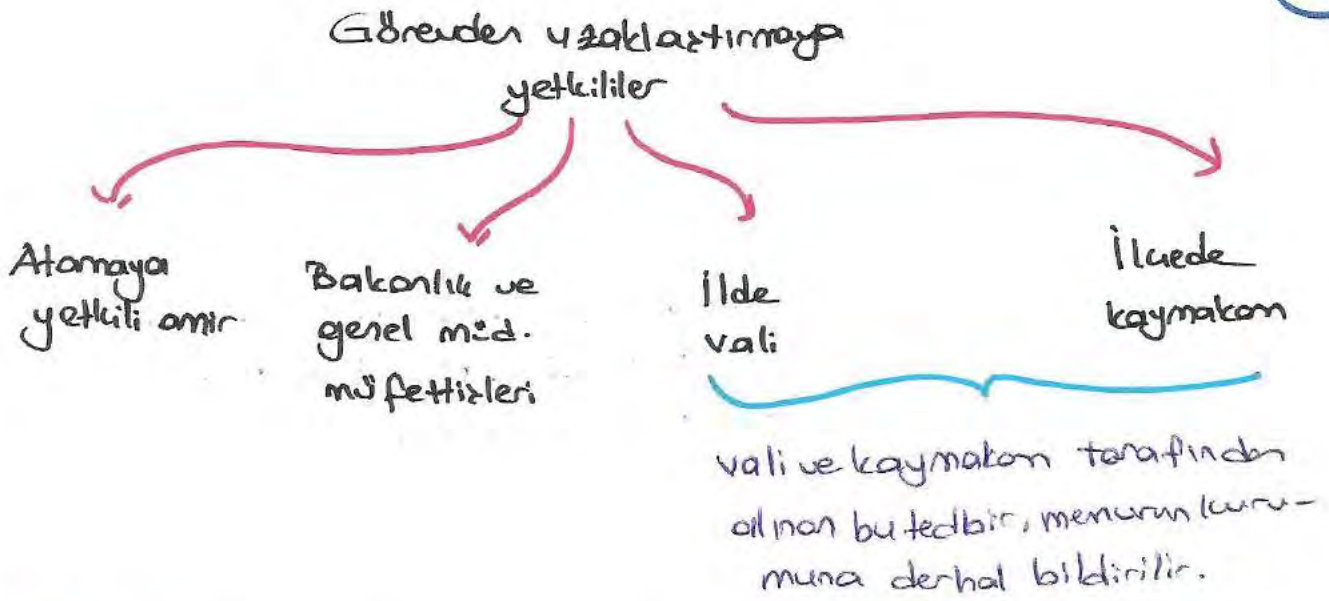 Görevden uzaklaştırmaya
yetkililer
Atamaya
yetkili amir
Bakanlık ve
genel müd.
müfettişleri
İlde
vali
İlçede
kaymakam
vali ve kaymakam tarafından
alınan bu tedbir, memurun kuru-
muna derhal bildirilir.